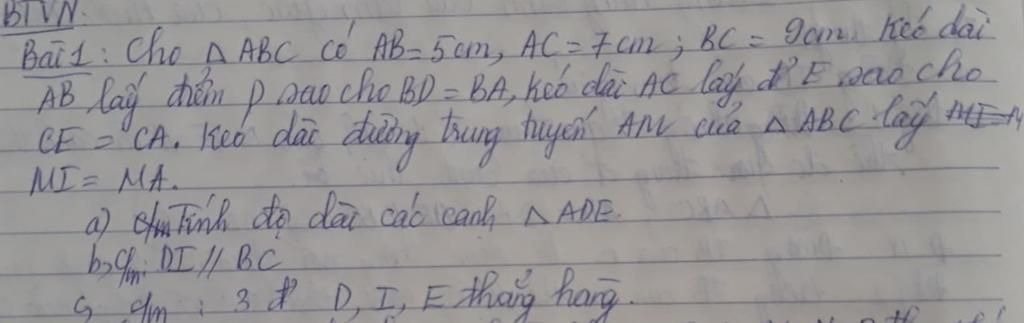 BTVN.
Bài 1: Cho △ ABC có AB = 5cm, AC = 7cm; BC = 9cm. Kéo dài
AB lấy điểm D sao cho BD = BA, kéo dài AC lấy đ' E sao cho
CE = CA. Kéo dài đường trung tuyến AM của △ ABC lấy
MI = MA.
a) Tính độ dài các cạnh △ ADE.
b, c/m: DI // BC
c, c/m : 3 đ' D, I, E thẳng hàng.